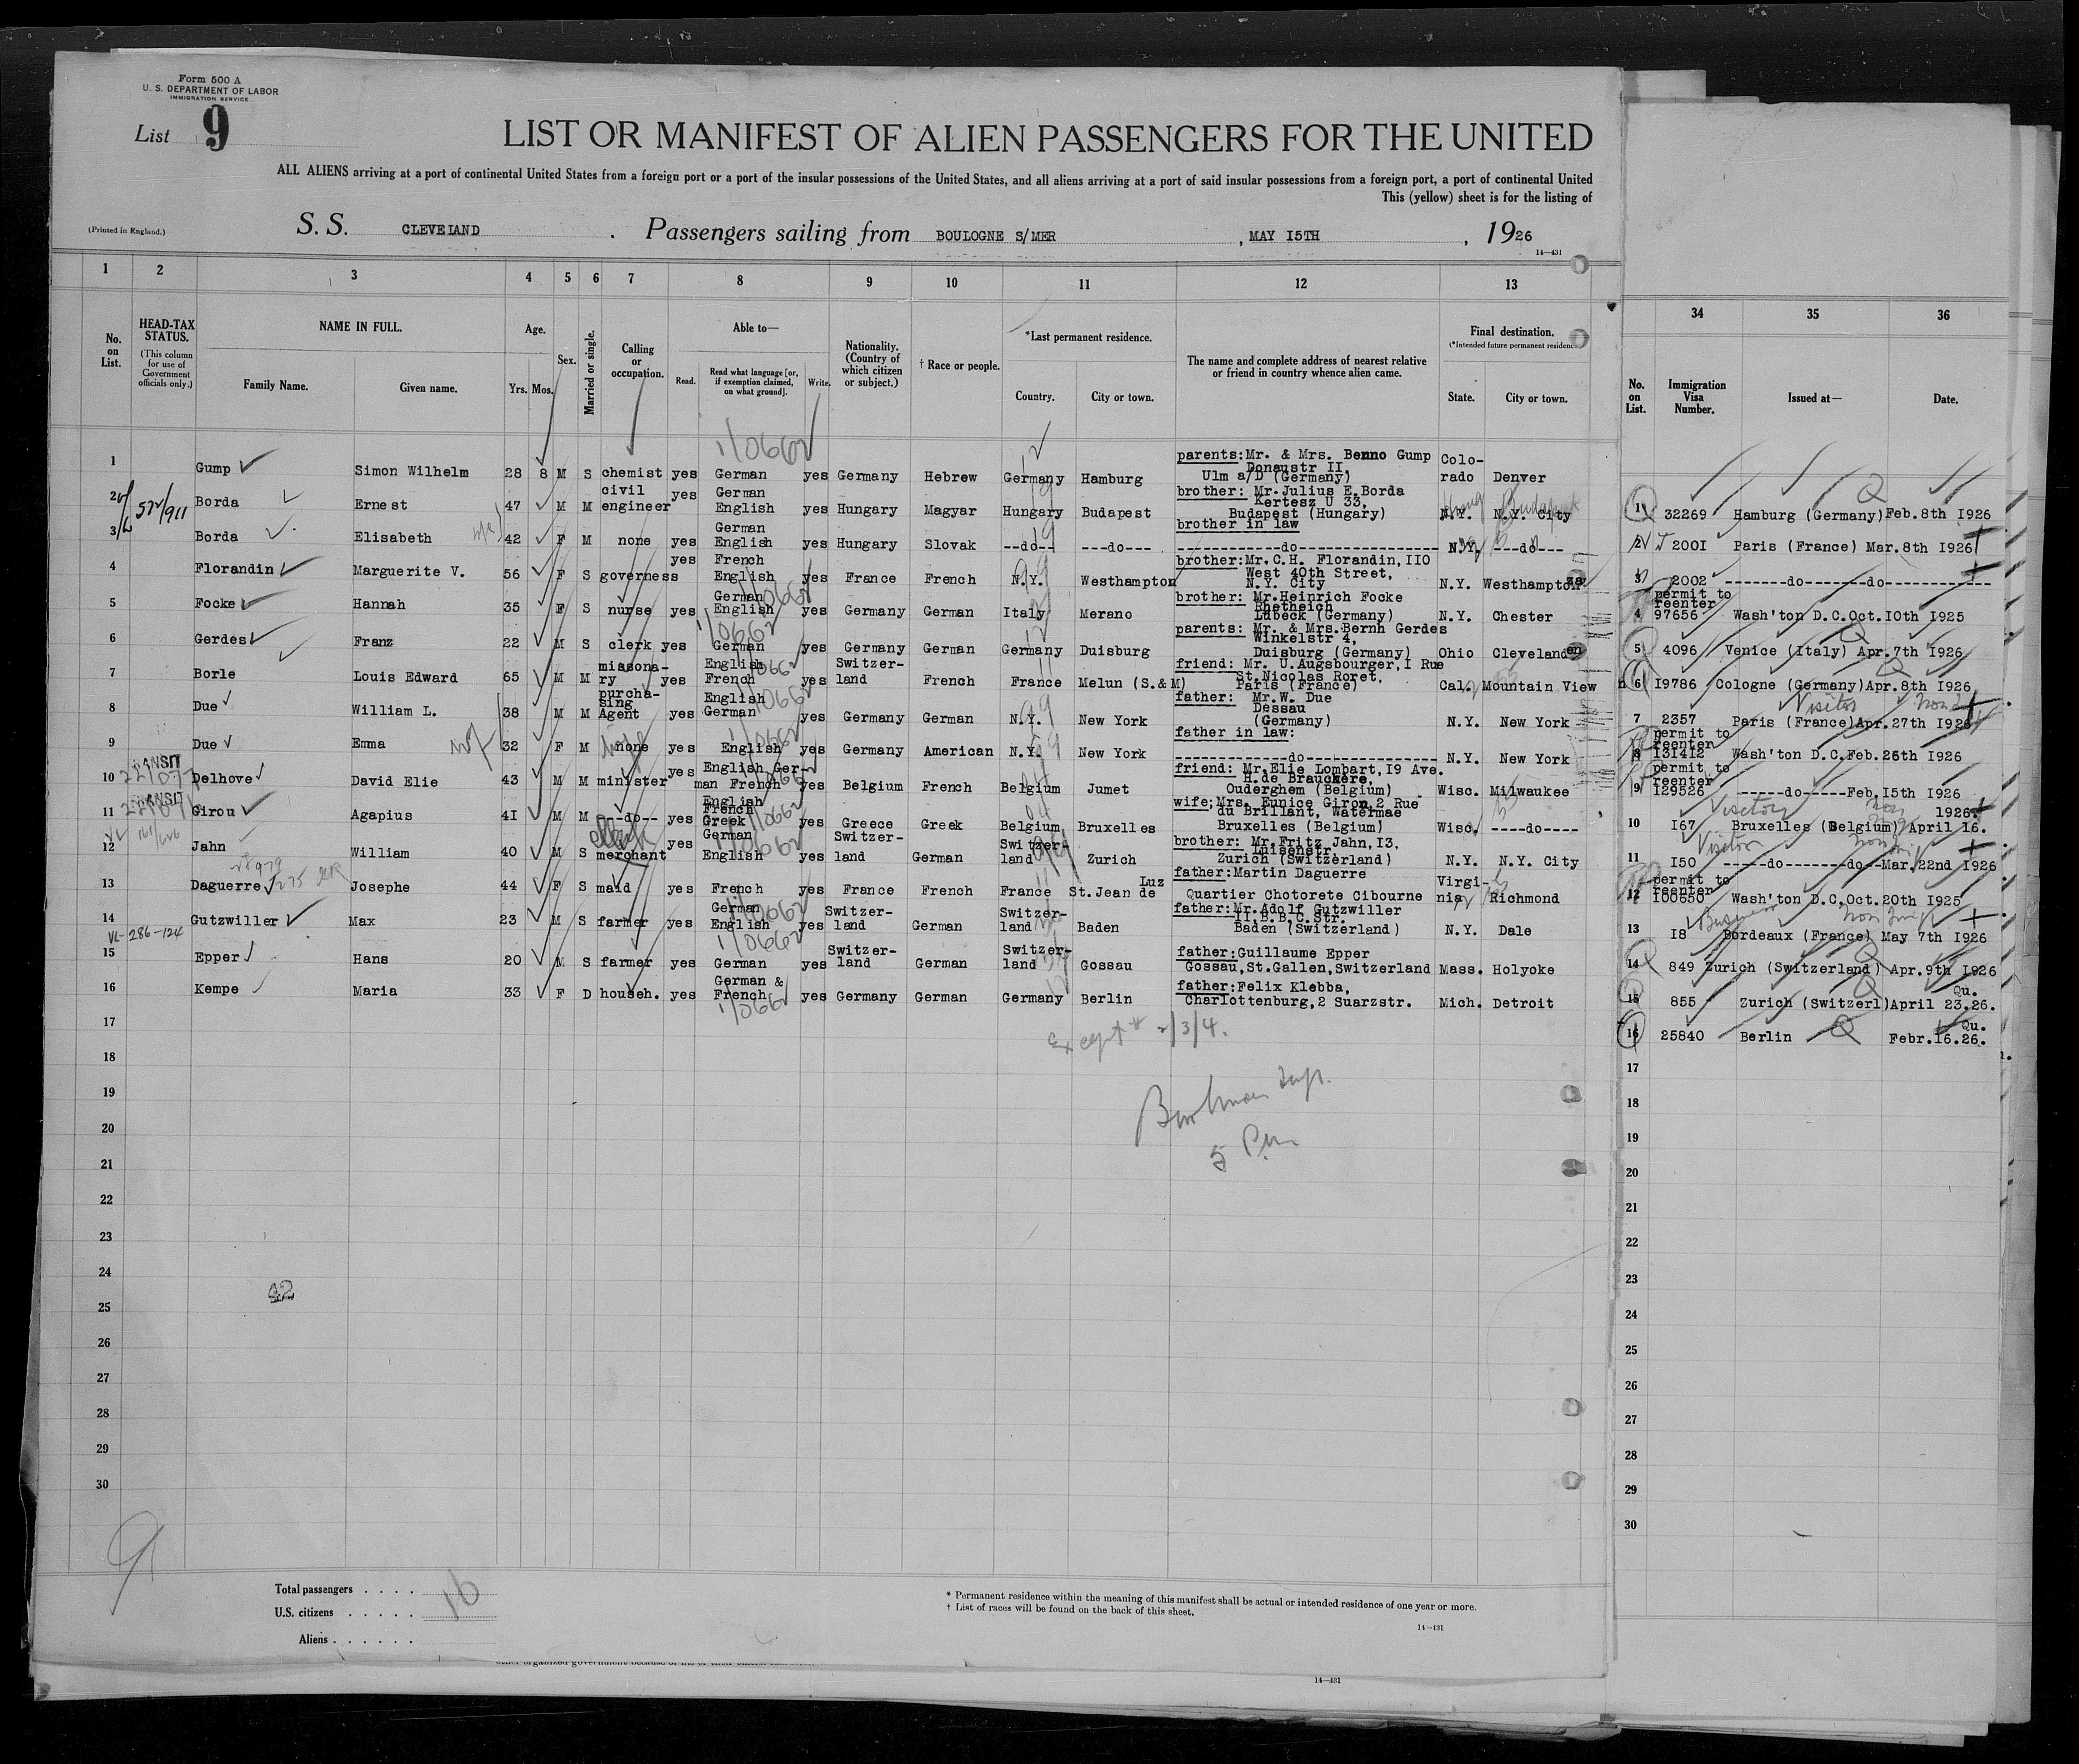 Form 500 A
U. S. DEPARTMENT OF LABOR
IMMIGRATION SERVICE
List 9
LIST OR MANIFEST OF ALIEN PASSENGERS FOR THE UNITED
ALL ALIENS arriving at a port of continental United States from a foreign port or a port of the insular possessions of the United States, and all aliens arriving at a port of said insular possessions from a foreign port, a port of continental United
This (yellow) sheet is for the listing of
(Printed in England.)
S. S. CLEVELAND . Passengers sailing from BOULOGNE S/MER , MAY I5TH , 1926
14—431
1 2 3 4 5 6 7 8 9 10 11 12 13
No. on List.
HEAD-TAX STATUS.
(This column for use of Government officials only.)
NAME IN FULL.
Family Name. Given name.
Age.
Yrs. Mos.
Sex.
Married or single.
Calling or occupation.
Able to—
Read. Read what language [or, if exemption claimed, on what ground]. Write.
Nationality. (Country of which citizen or subject.)
† Race or people.
*Last permanent residence.
Country. City or town.
The name and complete address of nearest relative or friend in country whence alien came.
Final destination.
(*Intended future permanent residence
State. City or town.
1 Gump Simon Wilhelm 28 8 M S chemist yes German yes Germany Hebrew Germany Hamburg parents: Mr. & Mrs. Benno Gump Donaustr II, Ulm a/D (Germany) Colo-rado Denver
2 Borda Ernest 47 M M civil engineer yes German English yes Hungary Magyar Hungary Budapest brother: Mr. Julius E. Borda Kertesz U 33, Budapest (Hungary) N.Y. N.Y. City
3 Borda Elisabeth 42 F M none yes German English yes Hungary Slovak --do-- ---do--- brother in law -------------do---------------- N.Y. ---do---
4 Florandin Marguerite V. 56 F S governess yes French English yes France French N.Y. Westhampton brother: Mr. C.H. Florandin, IIO West 40th Street, N.Y. City N.Y. Westhampton
5 Focke Hannah 35 F S nurse yes German English yes Germany German Italy Merano brother: Mr. Heinrich Focke Rhetheich Lubeck (Germany) N.Y. Chester
6 Gerdes Franz 22 M S clerk yes German yes Germany German Germany Duisburg parents: Mr. & Mrs. Bernh Gerdes Winkelstr 4, Duisburg (Germany) Ohio Cleveland
7 Borle Louis Edward 65 M M missona-ry yes English French yes Switzer-land French France Melun (S.&M) friend: Mr. U. Augsbourger, I Rue St. Nicolas Roret, Paris (France) Cal. Mountain View
8 Due William L. 38 M M purcha-sing Agent yes English German yes Germany German N.Y. New York father: Mr. W. Due Dessau (Germany) N.Y. New York
9 Due Emma 32 F M none yes English yes Germany American N.Y. New York father in law: -------------do---------------- N.Y. New York
TRANSIT
10 Delhove David Elie 43 M M minister yes English Ger-man French yes Belgium French Belgium Jumet friend: Mr. Elie Lombart, I9 Ave. H. de Brauckere, Ouderghem (Belgium) Wisc. Milwaukee
TRANSIT
11 Girou Agapius 4I M M --do-- yes English French Greek yes Greece Greek Belgium Bruxelles wife; Mrs. Eunice Giron, 2 Rue du Brillant, Watermae Bruxelles (Belgium) Wisc. ----do----
12 Jahn William 40 M S merchant yes German English yes Switzer-land German Switzer-land Zurich brother: Mr. Fritz Jahn, I3, Luisenstr. Zurich (Switzerland) N.Y. N.Y. City
13 Daguerre Josephe 44 F S maid yes French yes France French France St. Jean de Luz father: Martin Daguerre Quartier Chotorete Cibourne Virgi-nia Richmond
14 Gutzwiller Max 23 M S farmer yes German English yes Switzer-land German Switzer-land Baden father: Mr. Adolf Gutzwiller II, B.B.C. Str. Baden (Switzerland) N.Y. Dale
VL-286-124
15 Epper Hans 20 M S farmer yes German yes Switzer-land German Switzer-land Gossau father: Guillaume Epper Gossau, St. Gallen, Switzerland Mass. Holyoke
16 Kempe Maria 33 F D househ. yes German & French yes Germany German Germany Berlin father: Felix Klebba, Charlottenburg, 2 Suarzstr. Mich. Detroit
17
Except # 2/3/4.
18
19
20
21
22
23
24
42
25
26
27
28
29
30
9
Total passengers . . . . 16
U.S. citizens . . . . .
Aliens . . . . . .
* Permanent residence within the meaning of this manifest shall be actual or intended residence of one year or more.
† List of races will be found on the back of this sheet.
14—431
14—431
34 35 36
No. on List.
Immigration Visa Number.
Issued at—
Date.
1 32269 Hamburg (Germany) Feb. 8th I926
2 200I Paris (France) Mar. 8th I926
3 2002 -------do-------do-------------
4 permit to reenter 97656 Wash'ton D.C. Oct. I0th I925
5 4096 Venice (Italy) Apr. 7th I926
6 I9786 Cologne (Germany) Apr. 8th I926
Visitor
7 2357 Paris (France) Apr. 27th I926
8 permit to reenter I3I4I2 Wash'ton D.C. Feb. 26th I926
9 permit to reenter I29526 -----do------Feb. I5th I926
Visitor
10 I67 Bruxelles (Belgium) April I6. 1926
Visitor
11 I50 -----do--------do--Mar. 22nd I926
12 permit to reenter I00650 Wash'ton D.C. Oct. 20th I925
Business
13 I8 Bordeaux (France) May 7th I926
14 849 Zurich (Switzerland) Apr. 9th I926
15 855 Zurich (Switzerl) April 23.26. Qu.
16 25840 Berlin Febr. I6.26. Qu.
17
18
19
20
21
22
23
24
25
26
27
28
29
30